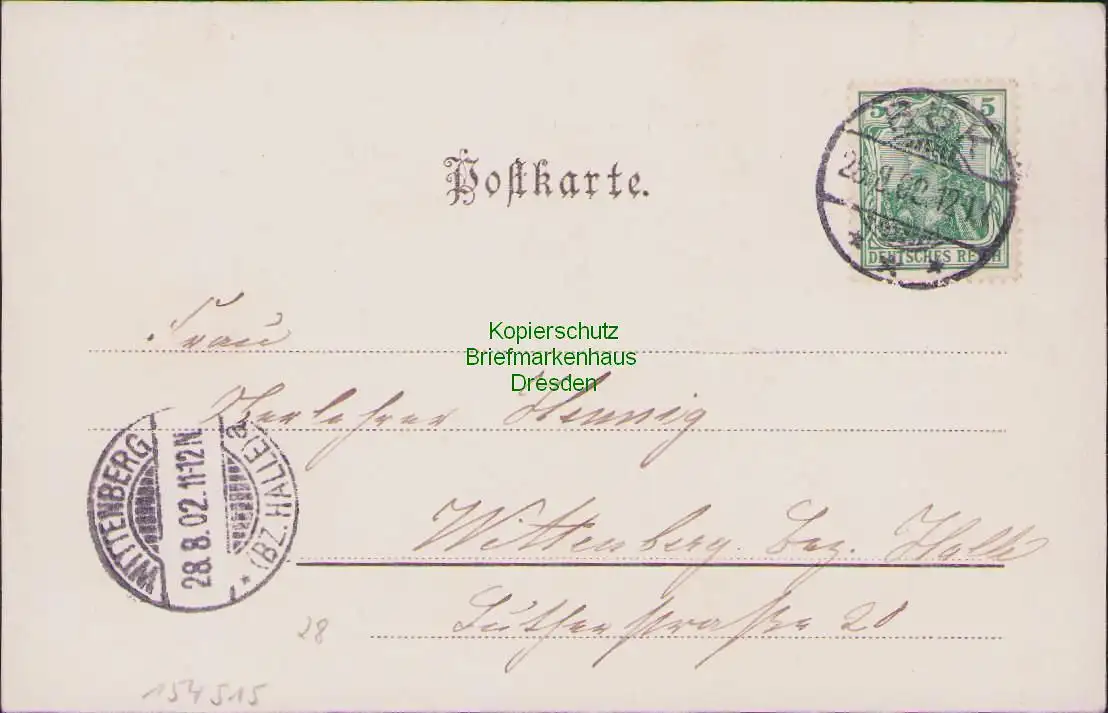 5 5
28.8.02.12-1
DEUTSCHES REICH
Postkarte.
Kopierschutz
Briefmarkenhaus
Dresden
Frau
Oberlehrer Hennig
WITTENBERG
28.8.02.11-12N.
(BZ. HALLE) a
Wittenberg Bez. Halle
Lutherstraße 20
28
154515